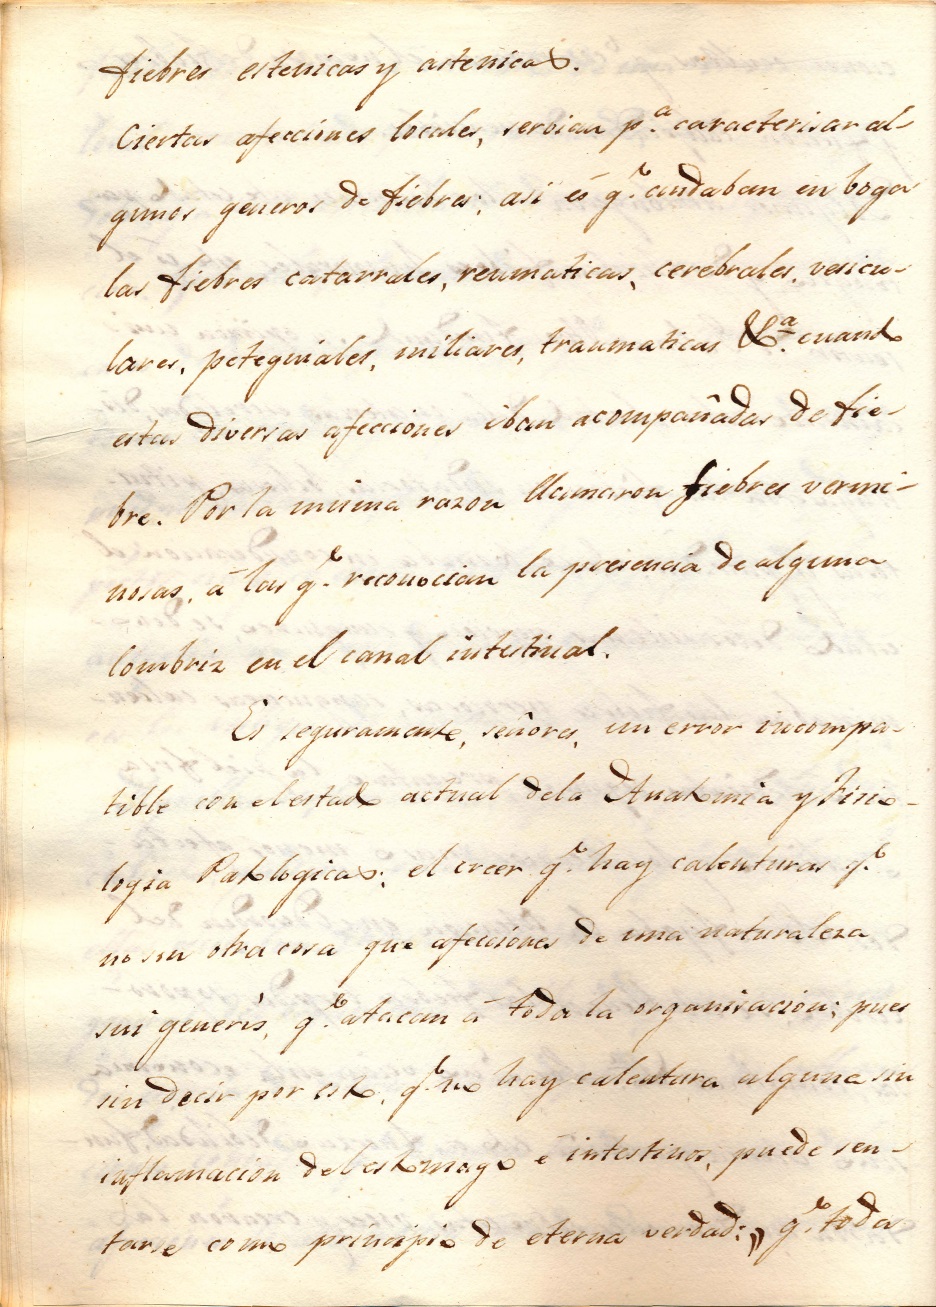 fiebres estenicas y astenicas.
Ciertas afecciones locales, serbian p.ª caracterisar al-
gunos generos de fiebres; asi és q.e andaban en boga
las fiebres catarrales, reumaticas, cerebrales, vesicu-
lares, petequiales, miliares, traumaticas &.ª cuando
estas diversas afecciones iban acompañadas de fie-
bre. Por la misma razon llamaron fiebres vermi-
nosas, á las q.e reconocian la presencia de alguna
lombriz en el canal intestinal.
Es seguramente, señores, un error incompa-
tible con el estado actual dela Anatomia y Fisio-
logia Patologicas; el creer q.e hay calenturas q.e
no son otra cosa que afecciones de una naturaleza
sui generis, q.e atacan á toda la organisacion; pues
sin decir por esto, q.e no hay calentura alguna sin
inflamacion del estomago é intestinos, puede sen-
tarse como principio de eterna verdad: „ q.e toda